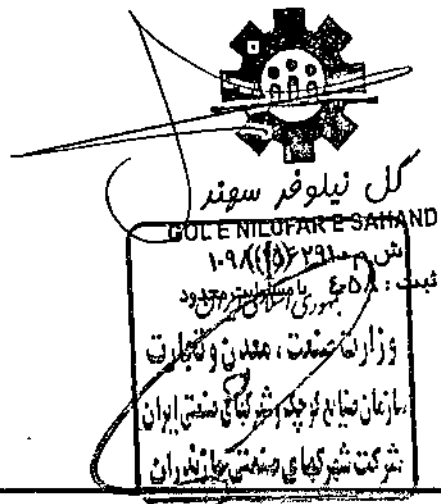 گل نیلوفر سهند
GOL E NILUFAR E SAHAND
ثبت : ۴۰۵۸
با مسئولیت محدود
جمهوری اسلامی ایران
وزارت صنعت ، معدن و تجارت
سازمان صنایع کوچک و شهرکهای صنعتی ایران
شرکت شهرکهای صنعتی مازندران